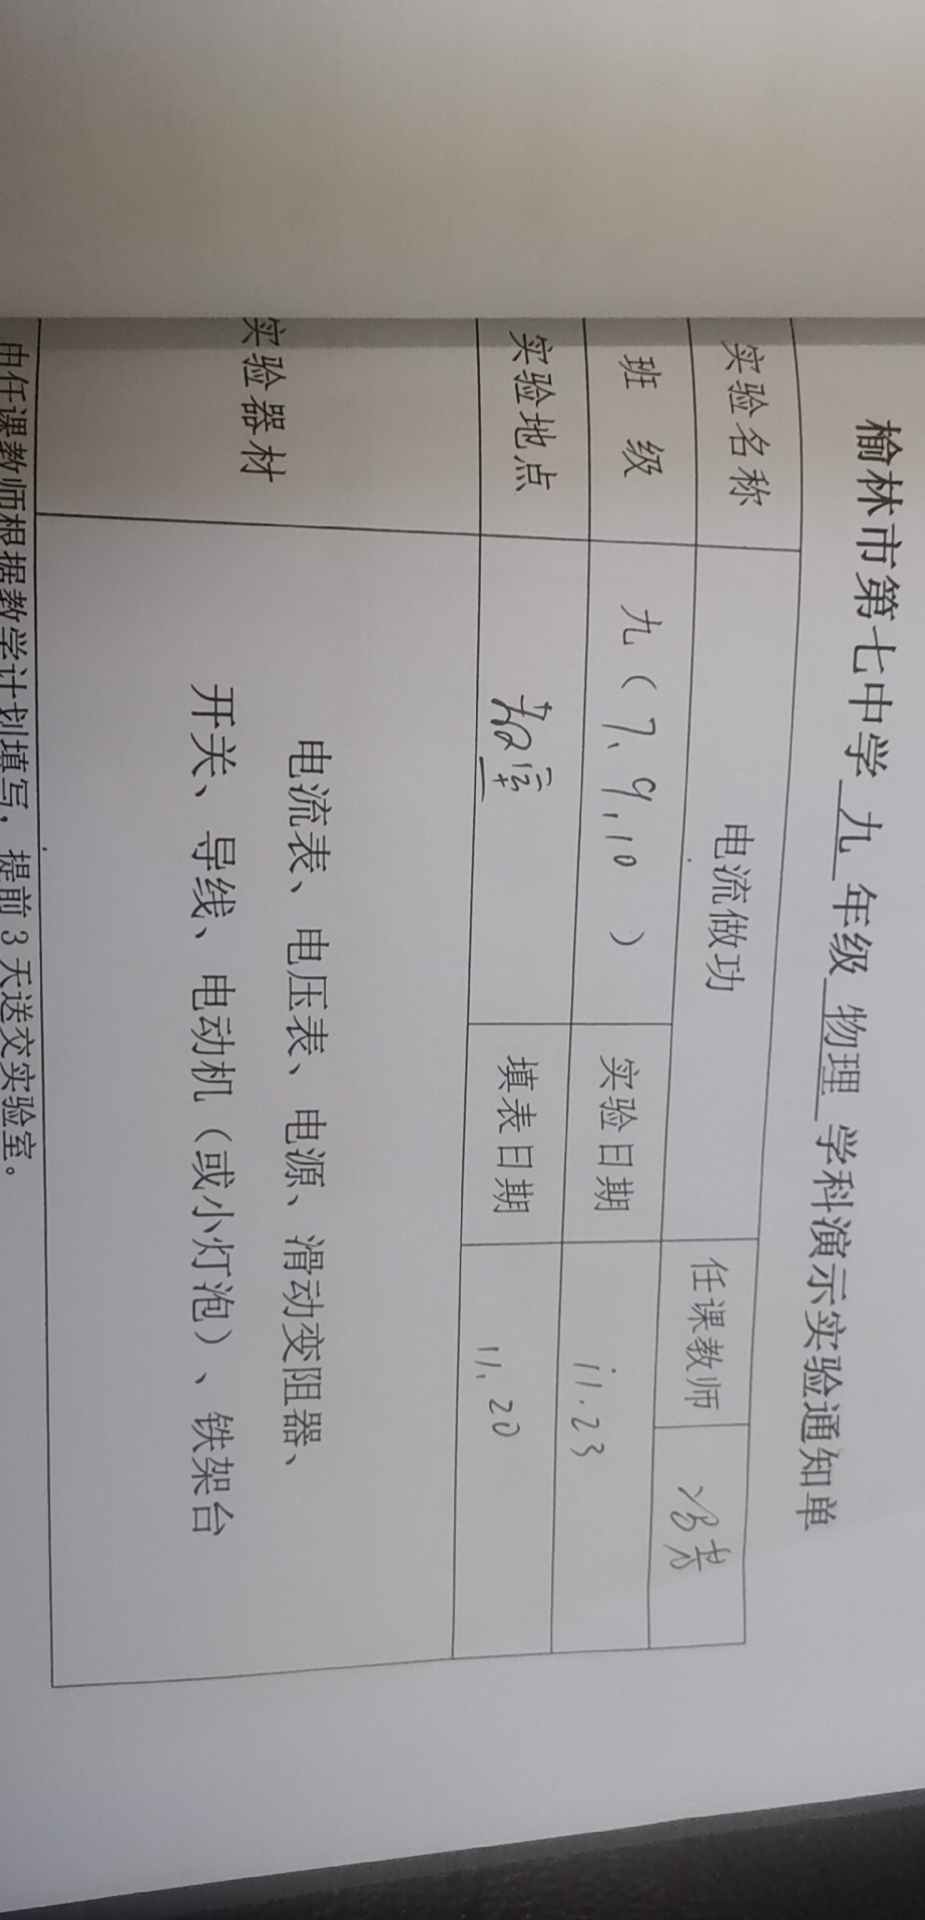 榆林市第七中学 九 年级 物理 学科演示实验通知单
实验名称 电流做功 任课教师
班 级 九（7、9、10 ） 实验日期 11.23
实验地点 教室 填表日期 11.20
实验器材
电流表、电压表、电源、滑动变阻器、
开关、导线、电动机（或小灯泡）、铁架台
由任课教师根据教学计划填写，提前 3 天送交实验室。